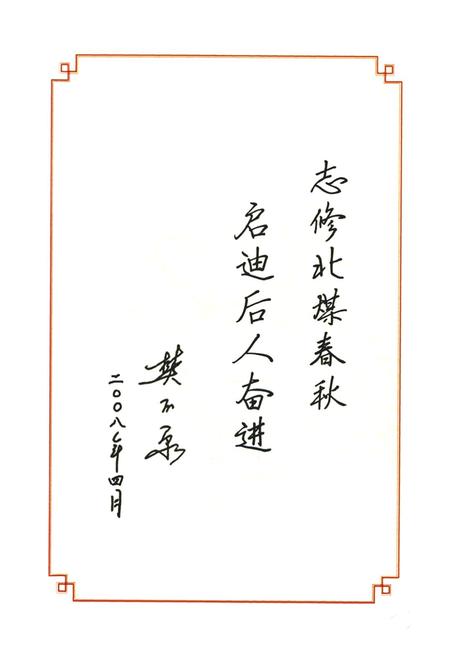 志修北煤春秋
启迪后人奋进
樊玉泉
二〇〇八年四月